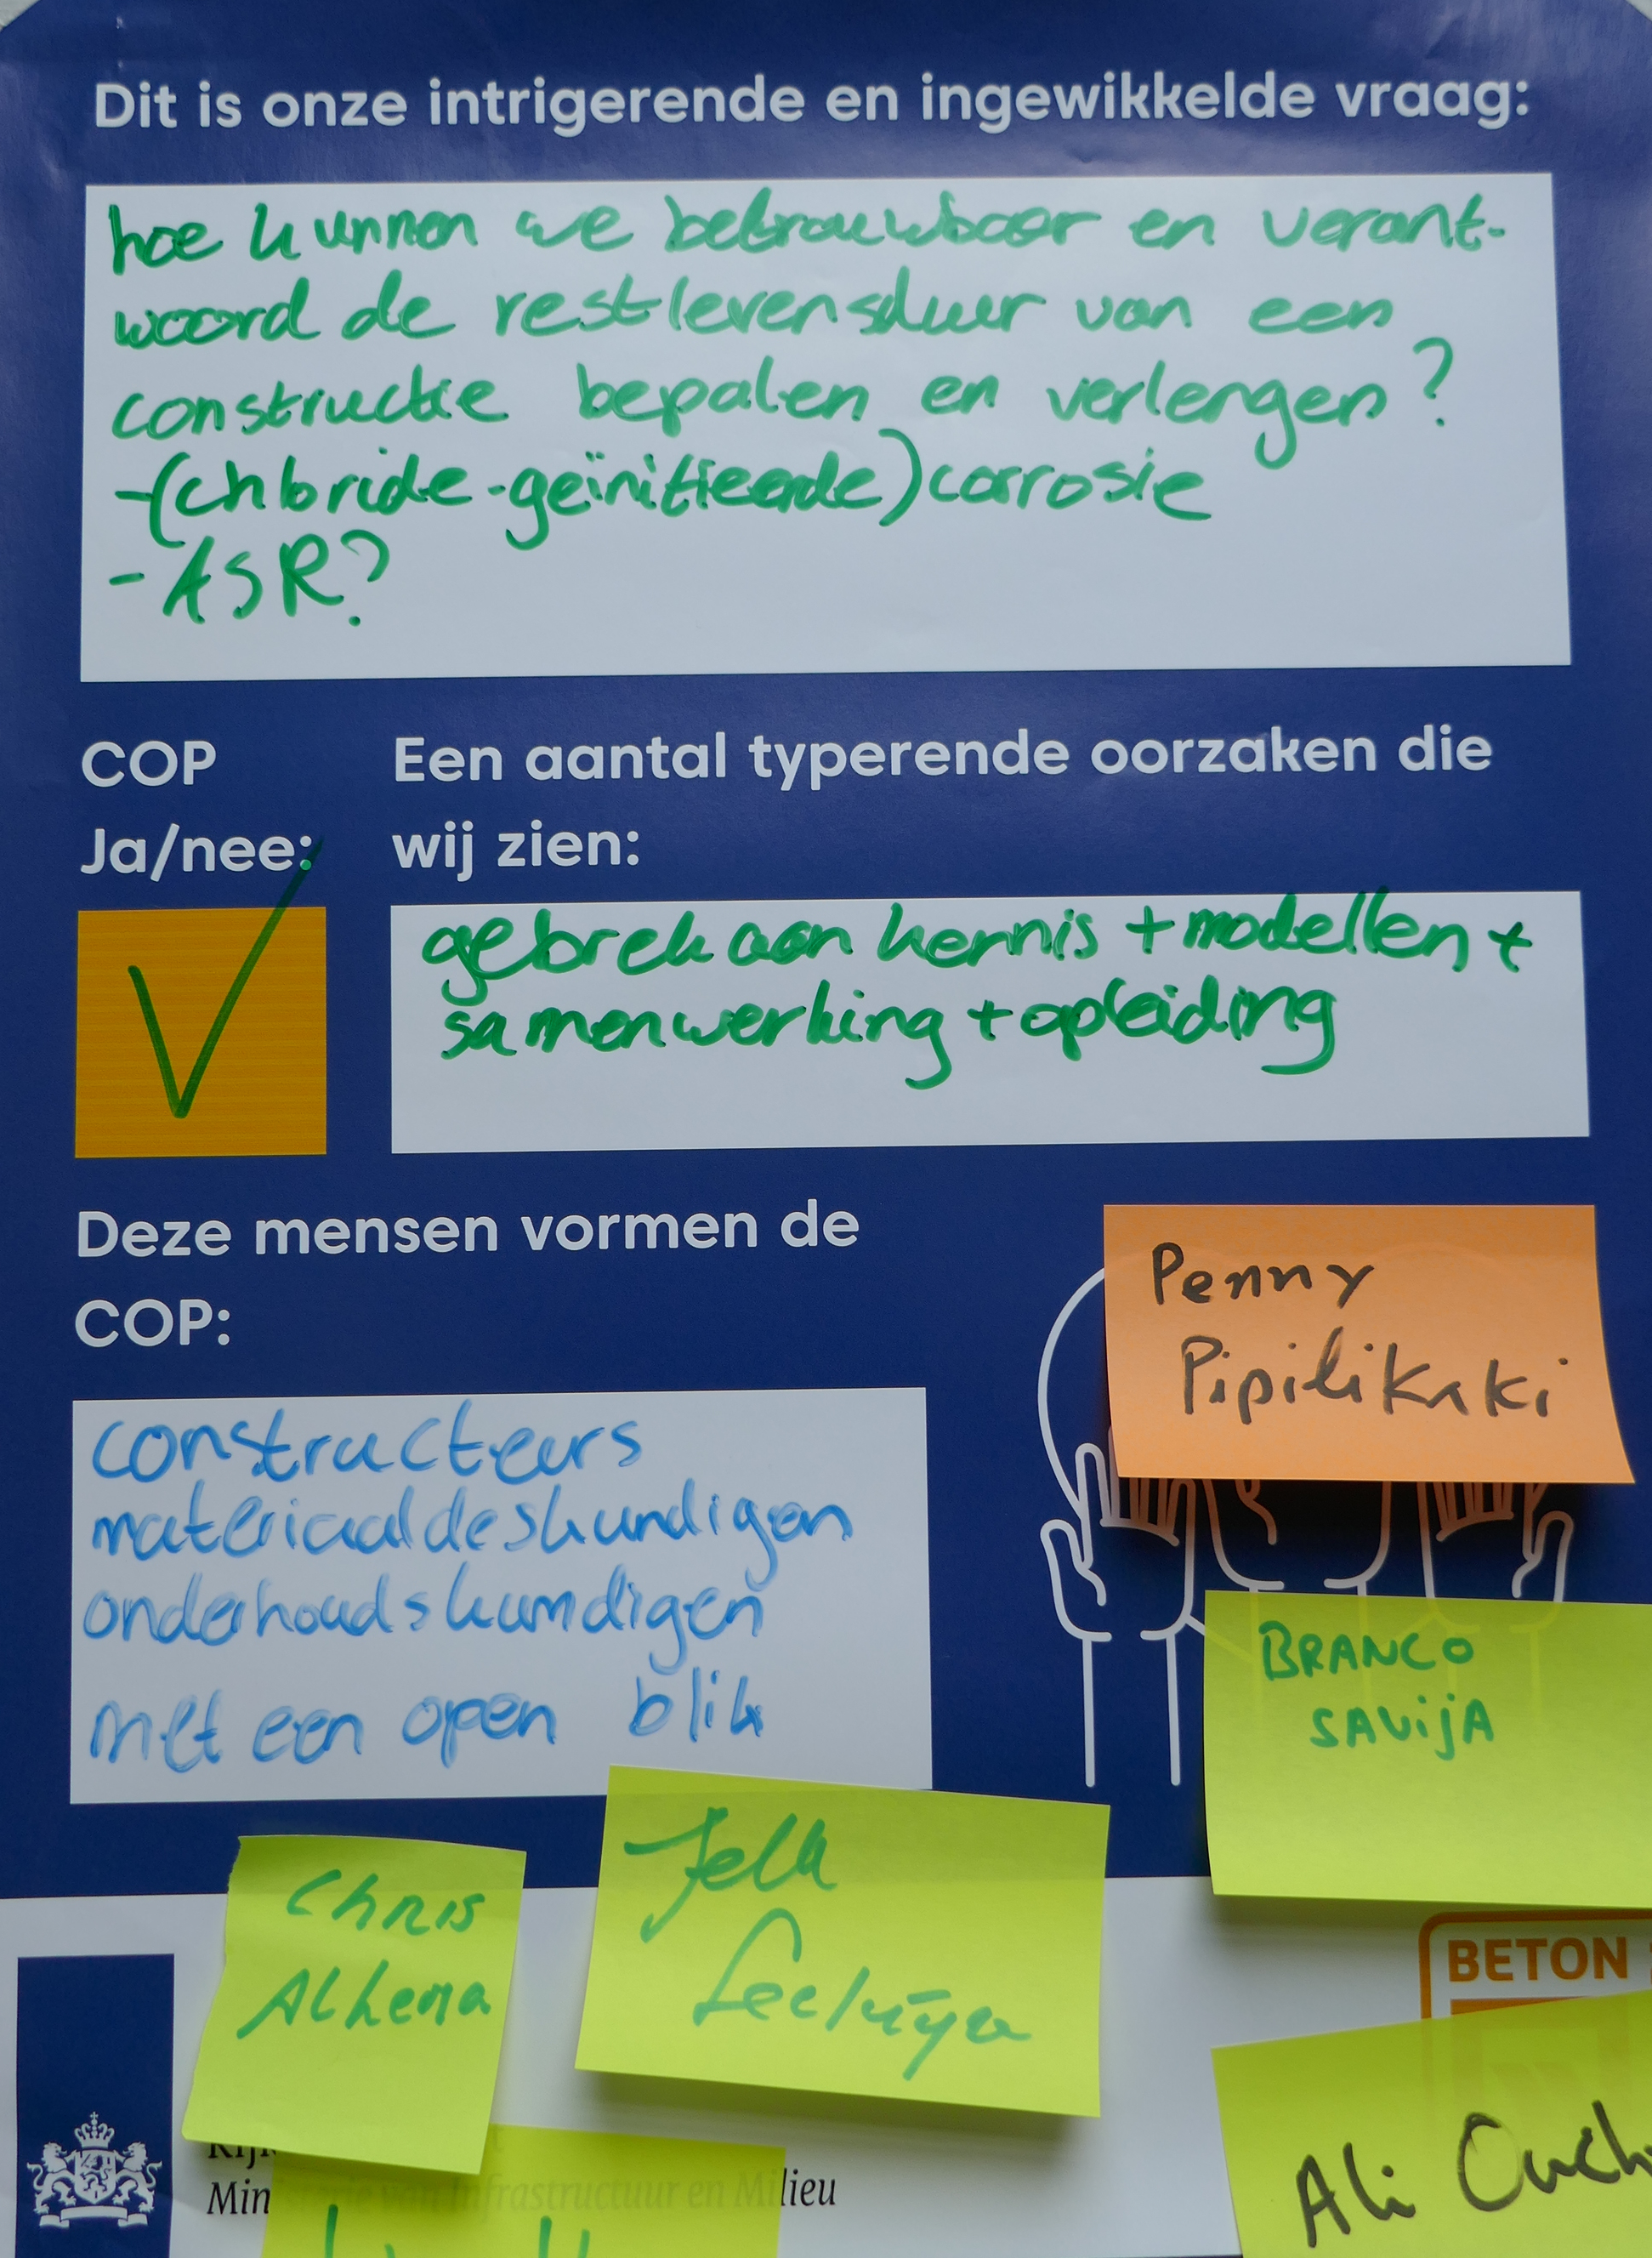 Dit is onze intrigerende en ingewikkelde vraag:
hoe kunnen we betrouwbaar en verant-
woord de restlevensduur van een
constructie bepalen en verlengen?
-(chloride-geïnitieerde) corrosie
-ASR?
COP
Ja/nee:
Een aantal typerende oorzaken die
wij zien:
gebrek aan kennis + modellen +
samenwerking + opleiding
Deze mensen vormen de
COP:
constructeurs
materiaaldeskundigen
onderhoudskundigen
met een open blik
Penny
Pipilikaki
BRANCO
SAVIJA
Chris
Alkema
Jelk
BETON
Ministerie van Infrastructuur en Milieu
Ali